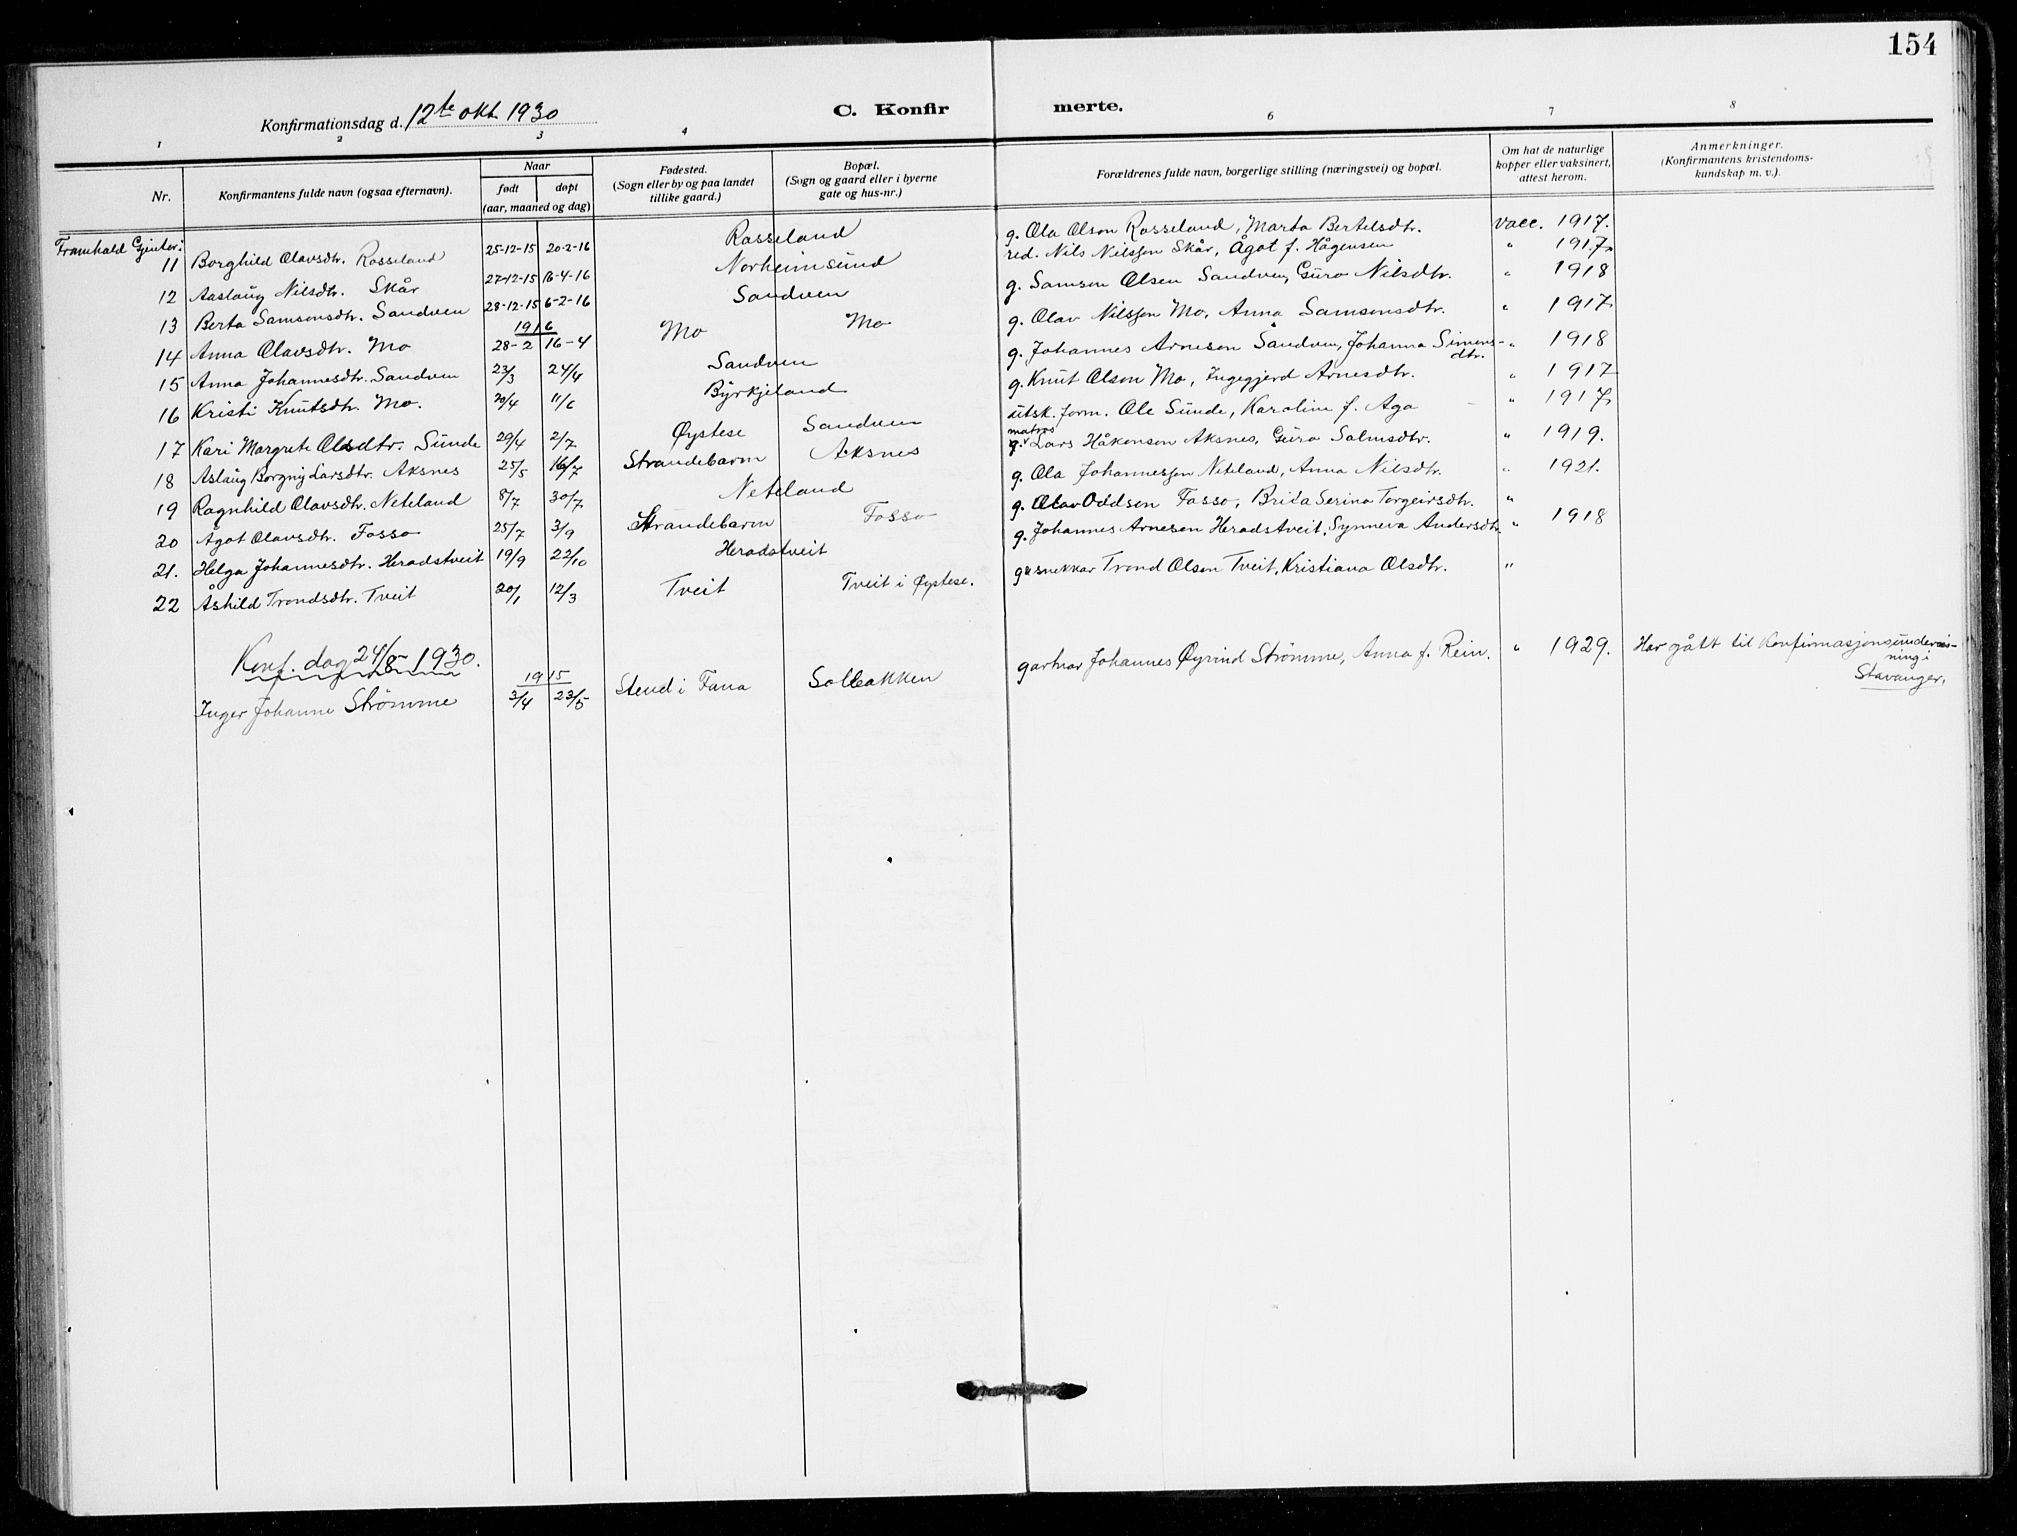 154
Konfirmationsdag d. 12te okt 1930
C. Konfirmerte.
1 2 3 4 6 7 8
Nr. Konfirmantens fulde navn (ogsaa efternavn). Naar født døpt (aar, maaned og dag) Fødested. (Sogn eller by og paa landet tillike gaard.) Bopæl. (Sogn og gaard eller i byerne gate og hus-nr.) Forældrenes fulde navn, borgerlige stilling (næringsvei) og bopæl. Om hat de naturlige kopper eller vaksinert, attest herom. Anmerkninger. (Konfirmantens kristendoms-kundskap m. v.).
Framhald Gjenter:
11 Borghild Olavsdtr. Rosseland 25-12-15 20-2-16 Rosseland g. Ola Olson Rosseland, Marta Bertelsdtr. Vacc. 1917.
12 Aaslaug Nilsdtr. Skår 27-12-15 16-4-16 Norheimsund red. Nils Nilsson Skår, Ågot f. Hågensen " 1917
13 Berta Samsonsdtr. Sandven 28-12-15 6-2-16 Sandven g. Samson Olsen Sandven, Guro Nilsdtr. " 1918
1916
14 Anna Olavsdtr. Mo 28-2 16-4 Mo Mo g. Olav Nilsson Mo, Anna Samsonsdtr. " 1917
15 Anna Johannesdtr. Sandven 23/3 24/4 Sandven g. Johannes Arneson Sandven, Johanna Simonsdtr. " 1918
16 Kristi Knutsdtr. Mo. 20/4 11/6 Byrkjeland g. Knut Olson Mo, Ingegjerd Arnesdtr. " 1917
17 Kari Margrete Olsdtr. Sunde 29/4 2/7 Øystese Sandven utsk. form. Ole Sunde, Karoline f. Aga " 1917
18 Aslaug Borgny Larsdtr. Aksnes 25/5 16/7 Strandebarm Aksnes matros g. Lars Håkonson Aksnes, Guro Salmsdtr. " 1919.
19 Ragnhild Olavsdtr. Neteland 8/7 30/7 Neteland g. Ola Johannesson Neteland, Anna Nilsdtr. " 1921.
20 Agot Olavsdtr. Fosso 25/7 3/9 Strandebarm Fosso g. Olav Oddson Fosso, Brita Serina Torgeirsdtr. "
21. Helga Johannesdtr. Heradstveit 19/9 22/10 Heradstveit g. Johannes Arneson Heradstveit, Synneva Andersdtr. " 1918
22 Åshild Trondsdtr. Tveit 20/1 12/3 Tveit Tveit i Øystese. snekkar Trond Olson Tveit, Kristiana Olsdtr. "
Konf. dag 24/8 - 1930.
1915
Inger Johanne Strømme 3/4 23/5 Stend i Fana Solbakken gartnar Johannes Øyvind Strømme, Anna f. Rein. " 1929. Har gått til konfirmasjonsundervisning i Stavanger.